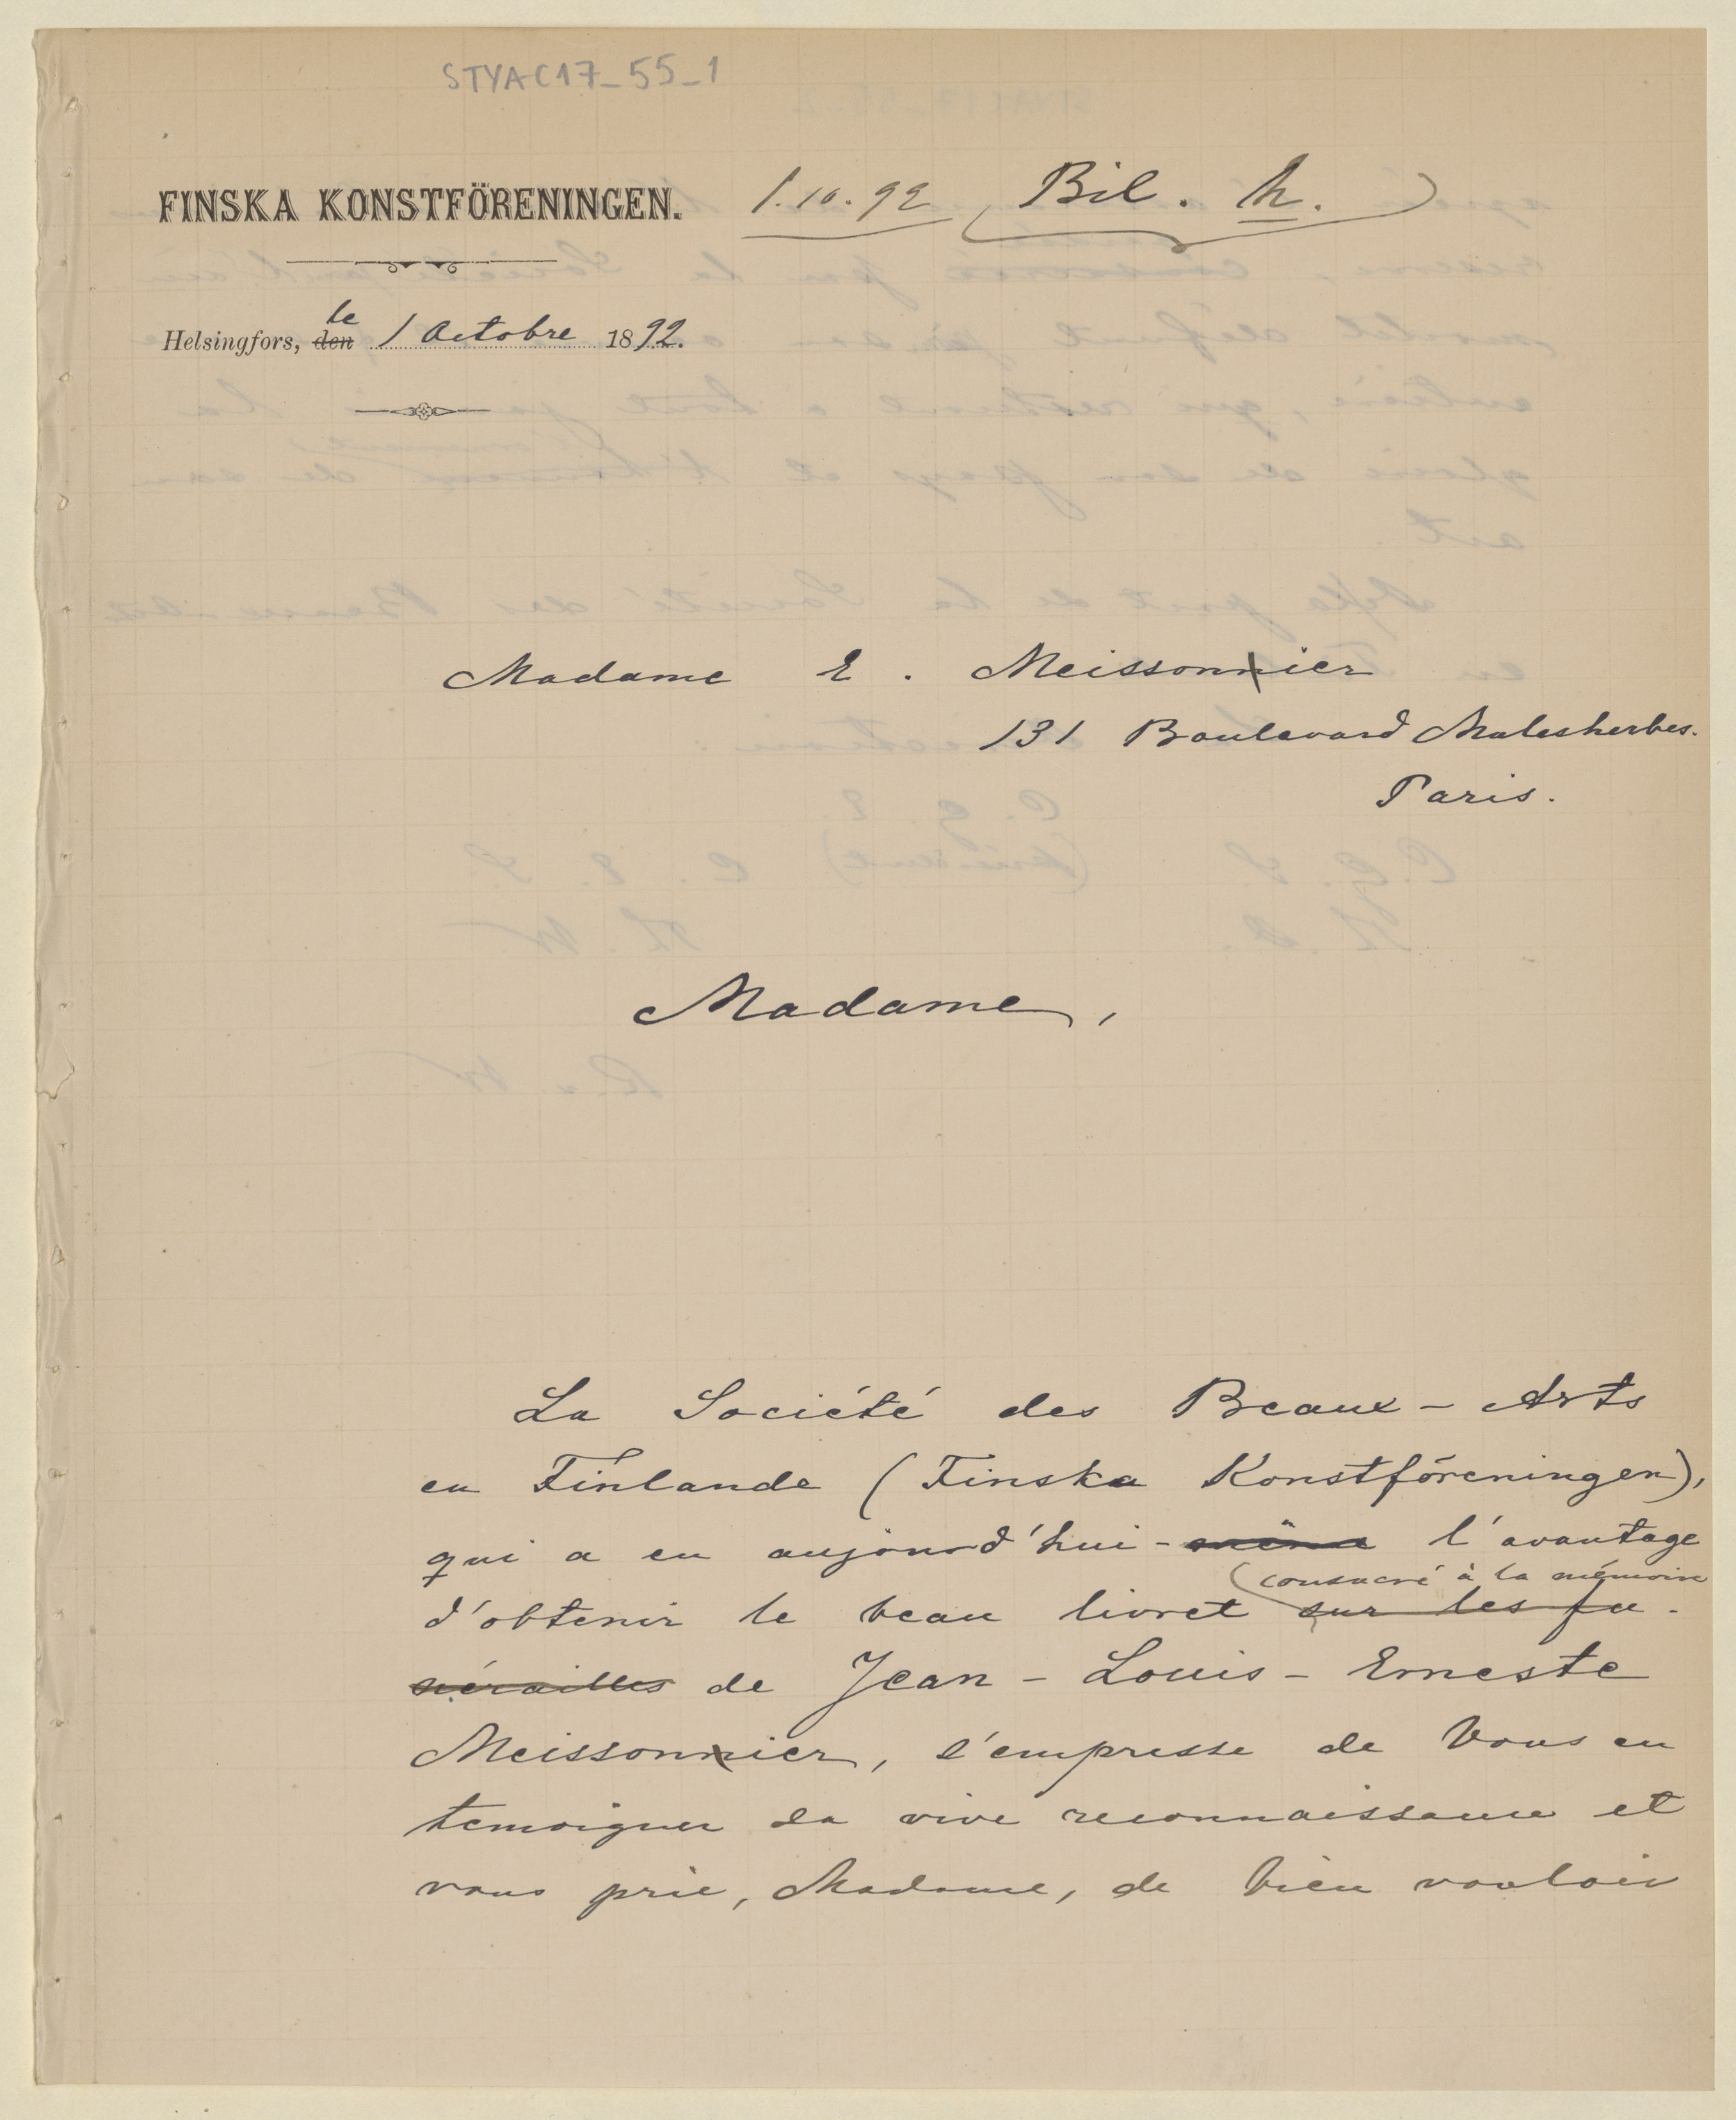 STYAC17_55_1
FINSKA KONSTFÖRENINGEN. 1.10.92 Bil. h.
le
Helsingfors, den 1 Octobre 1892.
Madame E. Meissonnier
131 Boulevard Malesherbes.
Paris.
Madame,
La Société des Beaux-Arts
en Finlande (Finska Konstföreningen),
qui a eu aujourd'hui-même l'avantage
consacré à la mémoire
d'obtenir le beau livret sur les fu-
nérailles de Jean-Louis-Erneste
Meissonnier, s'empresse de Vous en
temoigner sa vive reconnaissance et
vous prie, Madame, de bien vouloir